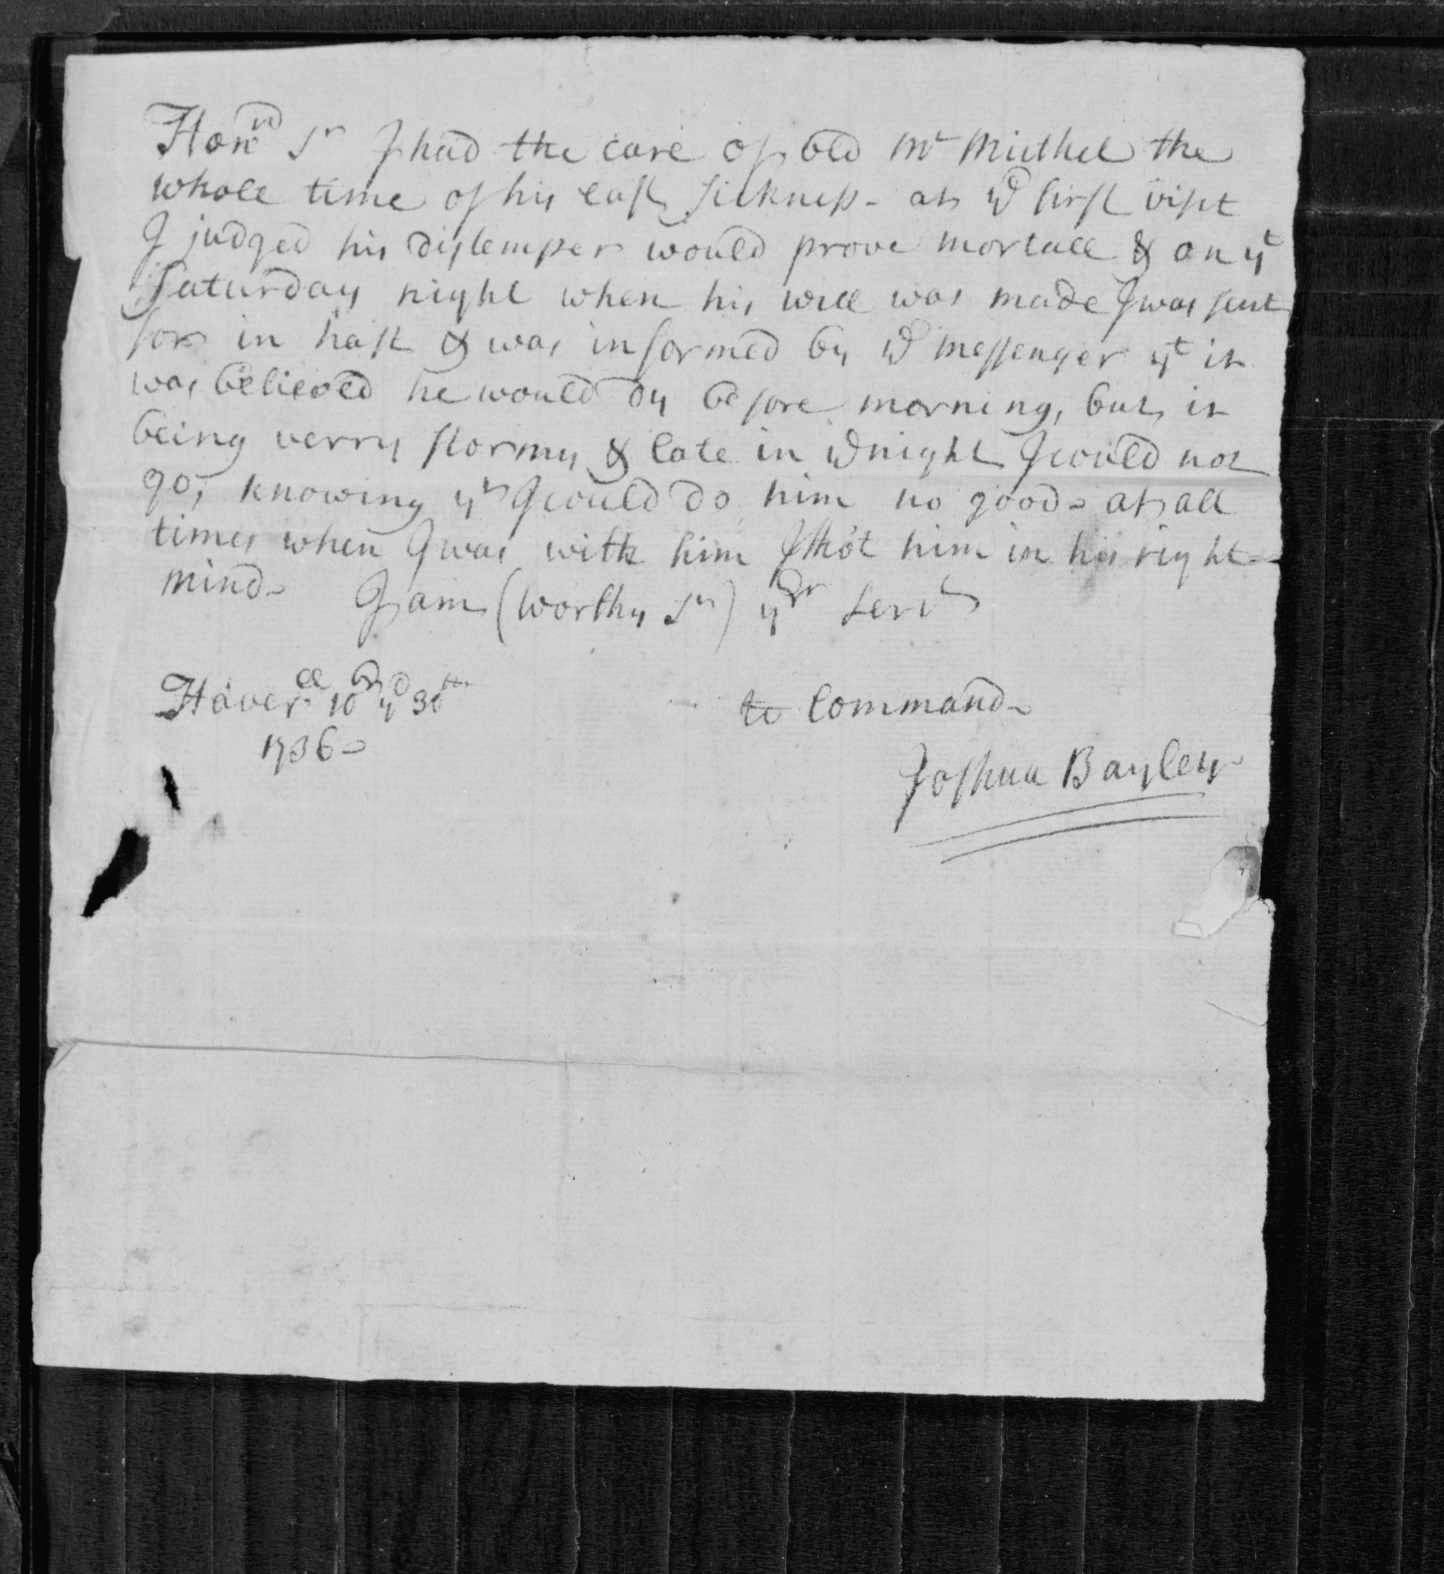 Honrd Sr I had the care of old Mr Mitchel the
whole time of his last sickness - at ye first visit
I judged his distemper would prove mortall & on yt
Saturday night when his will was made I was sent
for in hast & was informed by ye messenger yt it
was believed he would dy before morning, but it
being verry stormy & late in ye night I would not
go, knowing yt I could do him no good - at all
times when I was with him I tho't him in his right
mind - I am (worthy Sr) yr Servt
Haverll 10br ye 30th to Command -
1736 -
Joshua Bayley